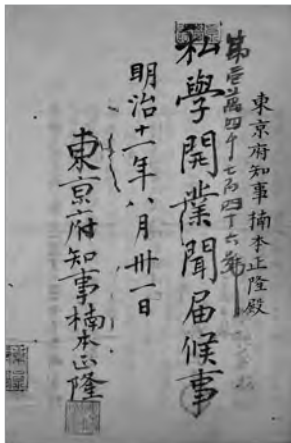 東京府知事楠本正隆殿
第壱萬四千七百四十六號
私學開業聞届候事
明治十一年八月卅一日
東京府知事楠本正隆